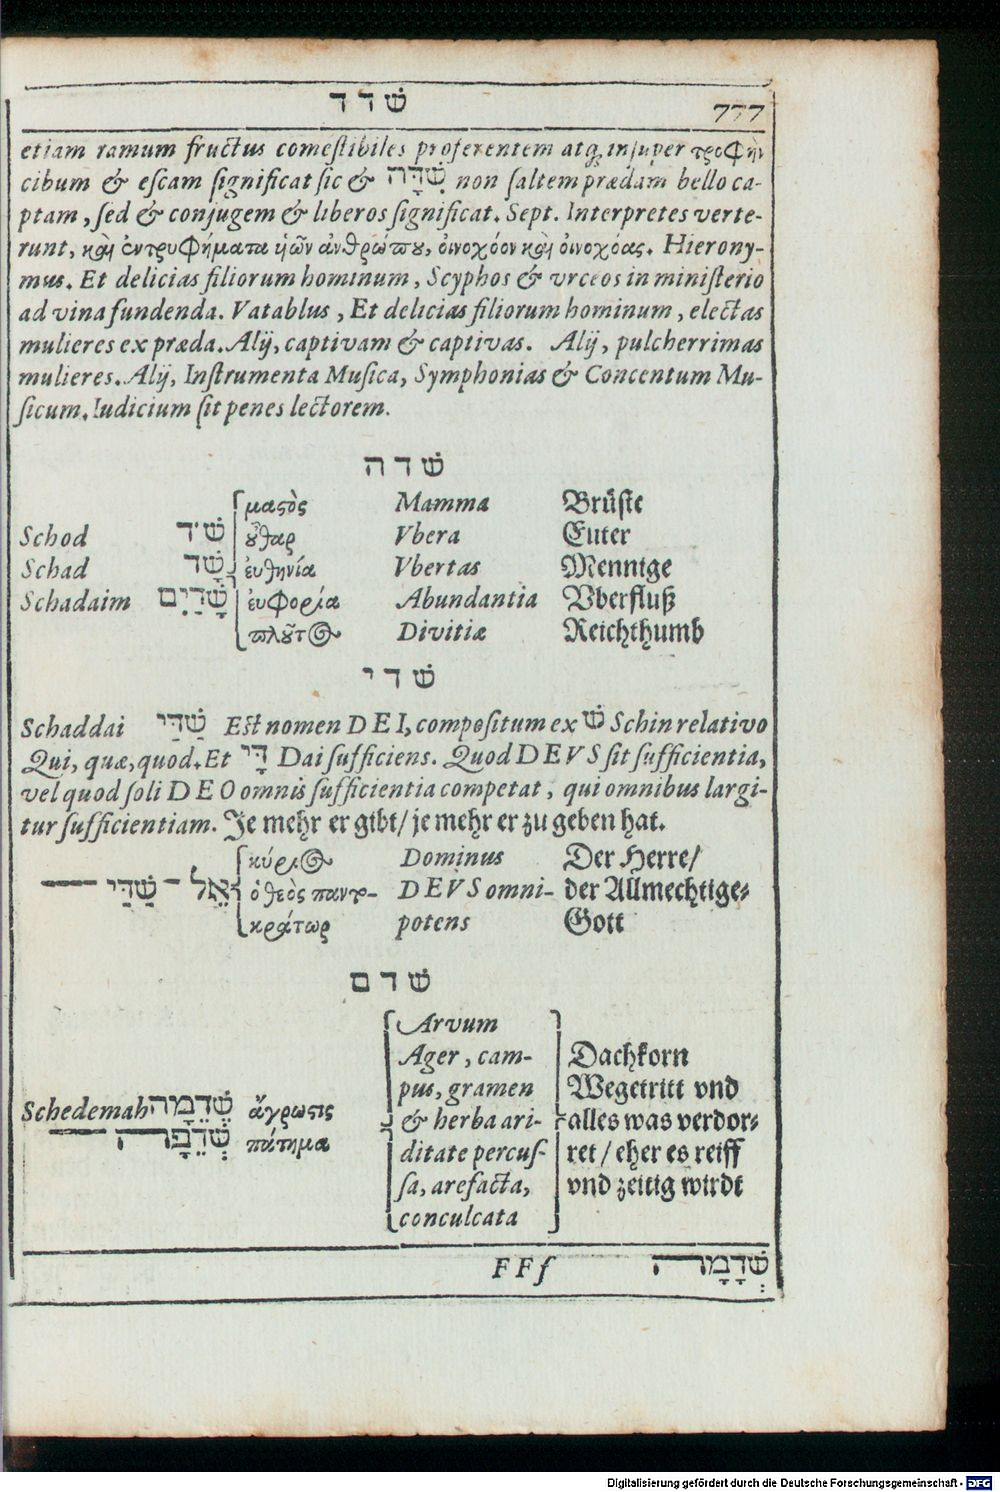 שׁדד 777
etiam ramum fructus comestibiles proferentem atq; insuper τροφὴν
cibum & escam significat sic & שִׁדָּה non saltem prædam bello ca-
ptam, sed & conjugem & liberos significat. Sept. Interpretes verte-
runt, καὶ ἐντρυφήματα ὑῶν ἀνθρώπου, ὀινοχόον καὶ ὀινοχόας. Hierony-
mus. Et delicias filiorum hominum, Scyphos & vrceos in ministerio
ad vina fundenda. Vatablus, Et delicias filiorum hominum, electas
mulieres ex præda. Alij, captivam & captivas. Alij, pulcherrimas
mulieres. Alij, Instrumenta Musica, Symphonias & Concentum Mu-
sicum. Iudicium sit penes lectorem.
שׁדה
μαςὸς Mamma Brüste
Schod שׁד οὖθαρ Vbera Euter
Schad שָׁד ἐυθηνία Vbertas Mennige
Schadaim שָׁדַיִם ἐυφορία Abundantia Vberfluß
πλοῦτος Divitiæ Reichthumb
שׁדי
Schaddai שַׁדַּי Est nomen DEI, compositum ex שׁ Schin relativo
Qui, quæ, quod. Et דָּי Dai sufficiens. Quod DEVS sit sufficientia,
vel quod soli DEO omnis sufficientia competat, qui omnibus largi-
tur sufficientiam. Je mehr er gibt/ je mehr er zu geben hat.
κύριος Dominus Der Herre/
אֵל־שַׁדַּי ὁ θεὸς παντο- DEVS omni- der Allmechtige-
κράτωρ potens Gott
שׁדם
Arvum
Ager, cam- Dachkorn
pus, gramen Wegetritt vnd
Schedemah שְׁדֵמָה ἄγρωςις & herba ari- alles was verdor-
שְׁדֵפָה πάτημα ditate percus- ret / eher es reiff
sa, arefacta, vnd zeitig wirdt
conculcata
FFf שְׁדָמָה
Digitalisierung gefördert durch die Deutsche Forschungsgemeinschaft - DFG